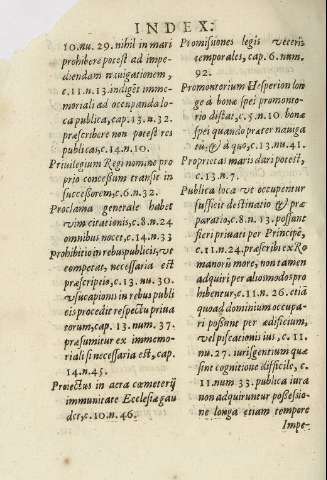 INDEX.
10. nu. 29. nihil in mari
prohibere potest ad impe-
diendam nauigationem,
c. 11. n. 13. indiget imme-
moriali ad occupanda lo-
ca publica, cap. 13. n. 32.
præscribere non potest res
publicas, c. 14. n. 10.
Priuilegium Regi nomine pro
prio concessum transit in
successorem, c. 6. n. 32.
Proclama generale habet
vim citationis, c. 8. n. 24
omnibus nocet, c. 14. n. 33
Prohibitio in rebus publicis, vt
competat, necessaria est
præscriptio, c. 13. nu. 30.
vsucapionis in rebus publi
cis procedit respectu priua
eorum, cap. 13. num. 37.
præsumitur ex immemo-
riali si necessaria est, cap.
14. n. 45.
Proiectus in acra cæmeterij
immunitate Ecclesiæ gau
det, c. 10. n. 46.
Promissiones legis veteris
temporales, cap. 6. num.
92.
Promontorium Hesperion lon
ge à bonæ spei promonto-
rio distat, c. 5. n. 10. bonæ
spei quando præter nauiga
tū, & à quo, c. 13. nu. 41.
Proprietas maris dari potest,
c. 13. n. 7.
Publica loca vt occupentur
sufficit destinatio & præ
paratio, c. 8. n. 13. possunt
fieri priuati per Principē,
c. 11. n. 24. præscribi ex Ro
manorū more, non tamen
adquiri per alios modos pro
hibentur, c. 11. n. 26. etiā
quoad dominium occupa-
ri possunt per ædificium,
vel piscationis ius, c. 11.
nu. 27. iuris gentium quæ
sint cognitione difficile, c.
11. num 33. publica iura
non adquiruntur possessio-
ne longa etiam tempore
Impe-